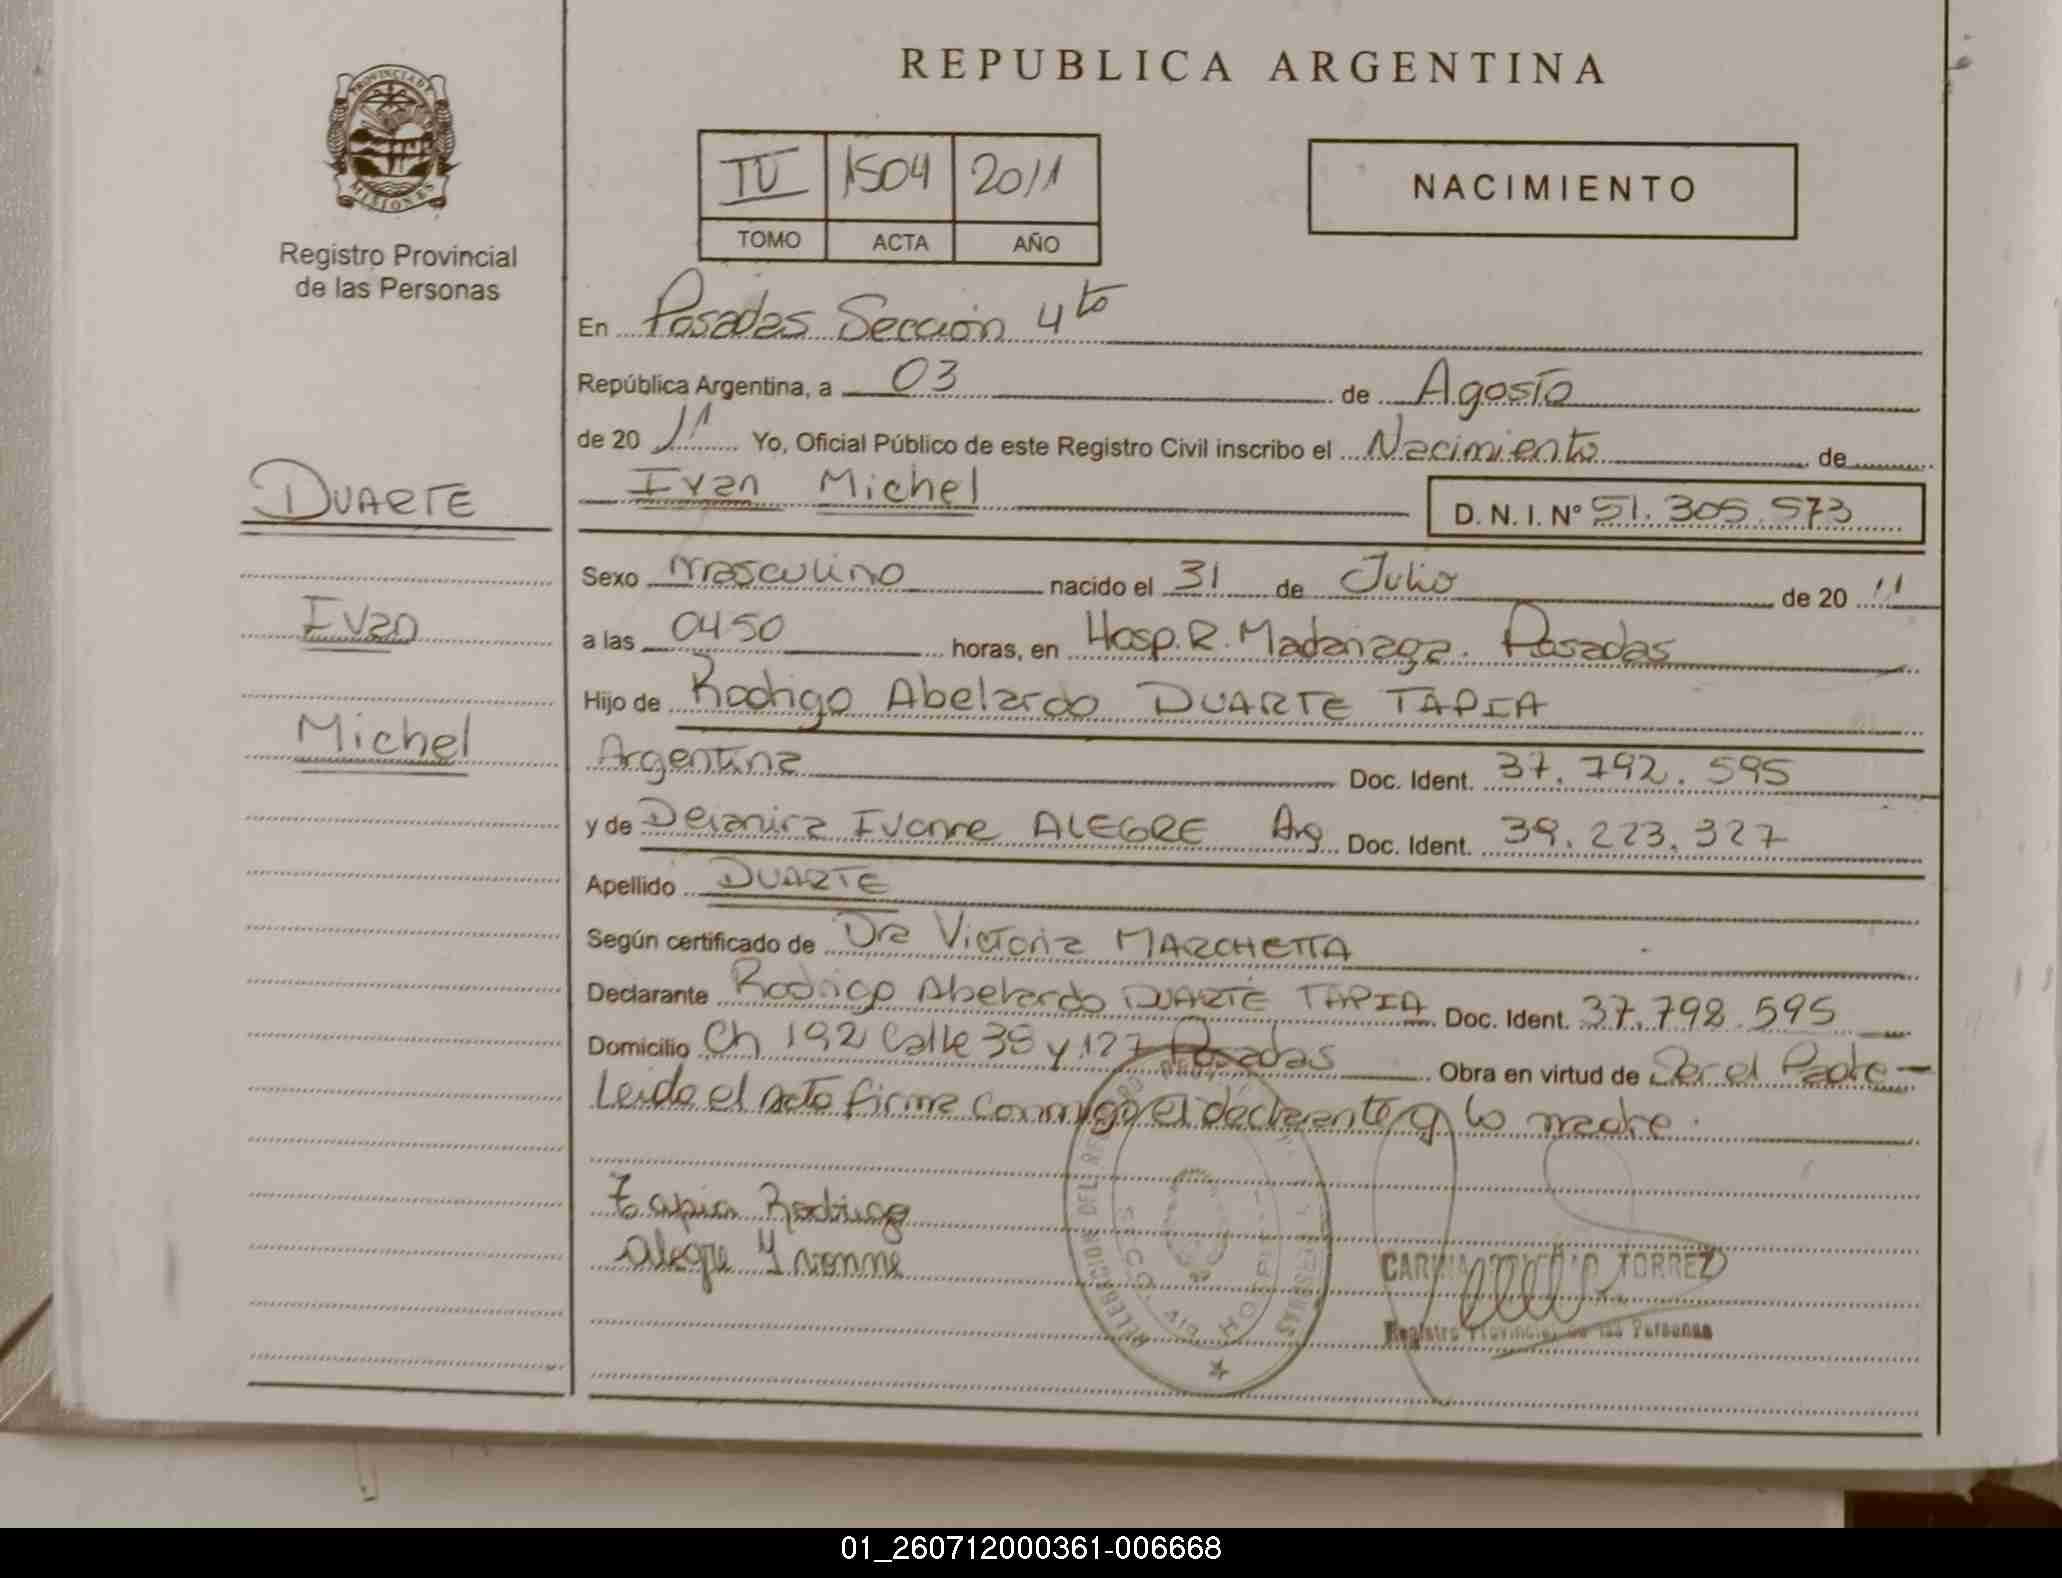 REPUBLICA ARGENTINA
PROVINCIA DE
MISIONES
Registro Provincial
de las Personas
IV 1504 2011
TOMO ACTA AÑO
NACIMIENTO
En Posadas Sección 4to
República Argentina, a 03 de Agosto
de 2011 Yo, Oficial Público de este Registro Civil inscribo el Nacimiento de
DUARTE
Ivan Michel D. N. I. Nº 51.305.573
Sexo masculino nacido el 31 de Julio de 2011
Ivan
a las 0450 horas, en Hosp. R. Madariaga. Posadas
Hijo de Rodrigo Abelardo DUARTE TAPIA
Michel
Argentina Doc. Ident. 37.792.595
y de Deianira Ivonne ALEGRE Arg Doc. Ident. 39.223.327
Apellido DUARTE
Según certificado de Dra Victoria MARCHETTA
Declarante Rodrigo Abelardo DUARTE TAPIA Doc. Ident. 37.798.595
Domicilio Ch 192 Calle 38 y 127 Posadas Obra en virtud de Ser el Padre
Leída el acta firma conmigo el declarante y la madre.
Tapia Rodrigo
Alegre Ivonne
TORREZ
Registro Provincial de las Personas
01_260712000361-006668